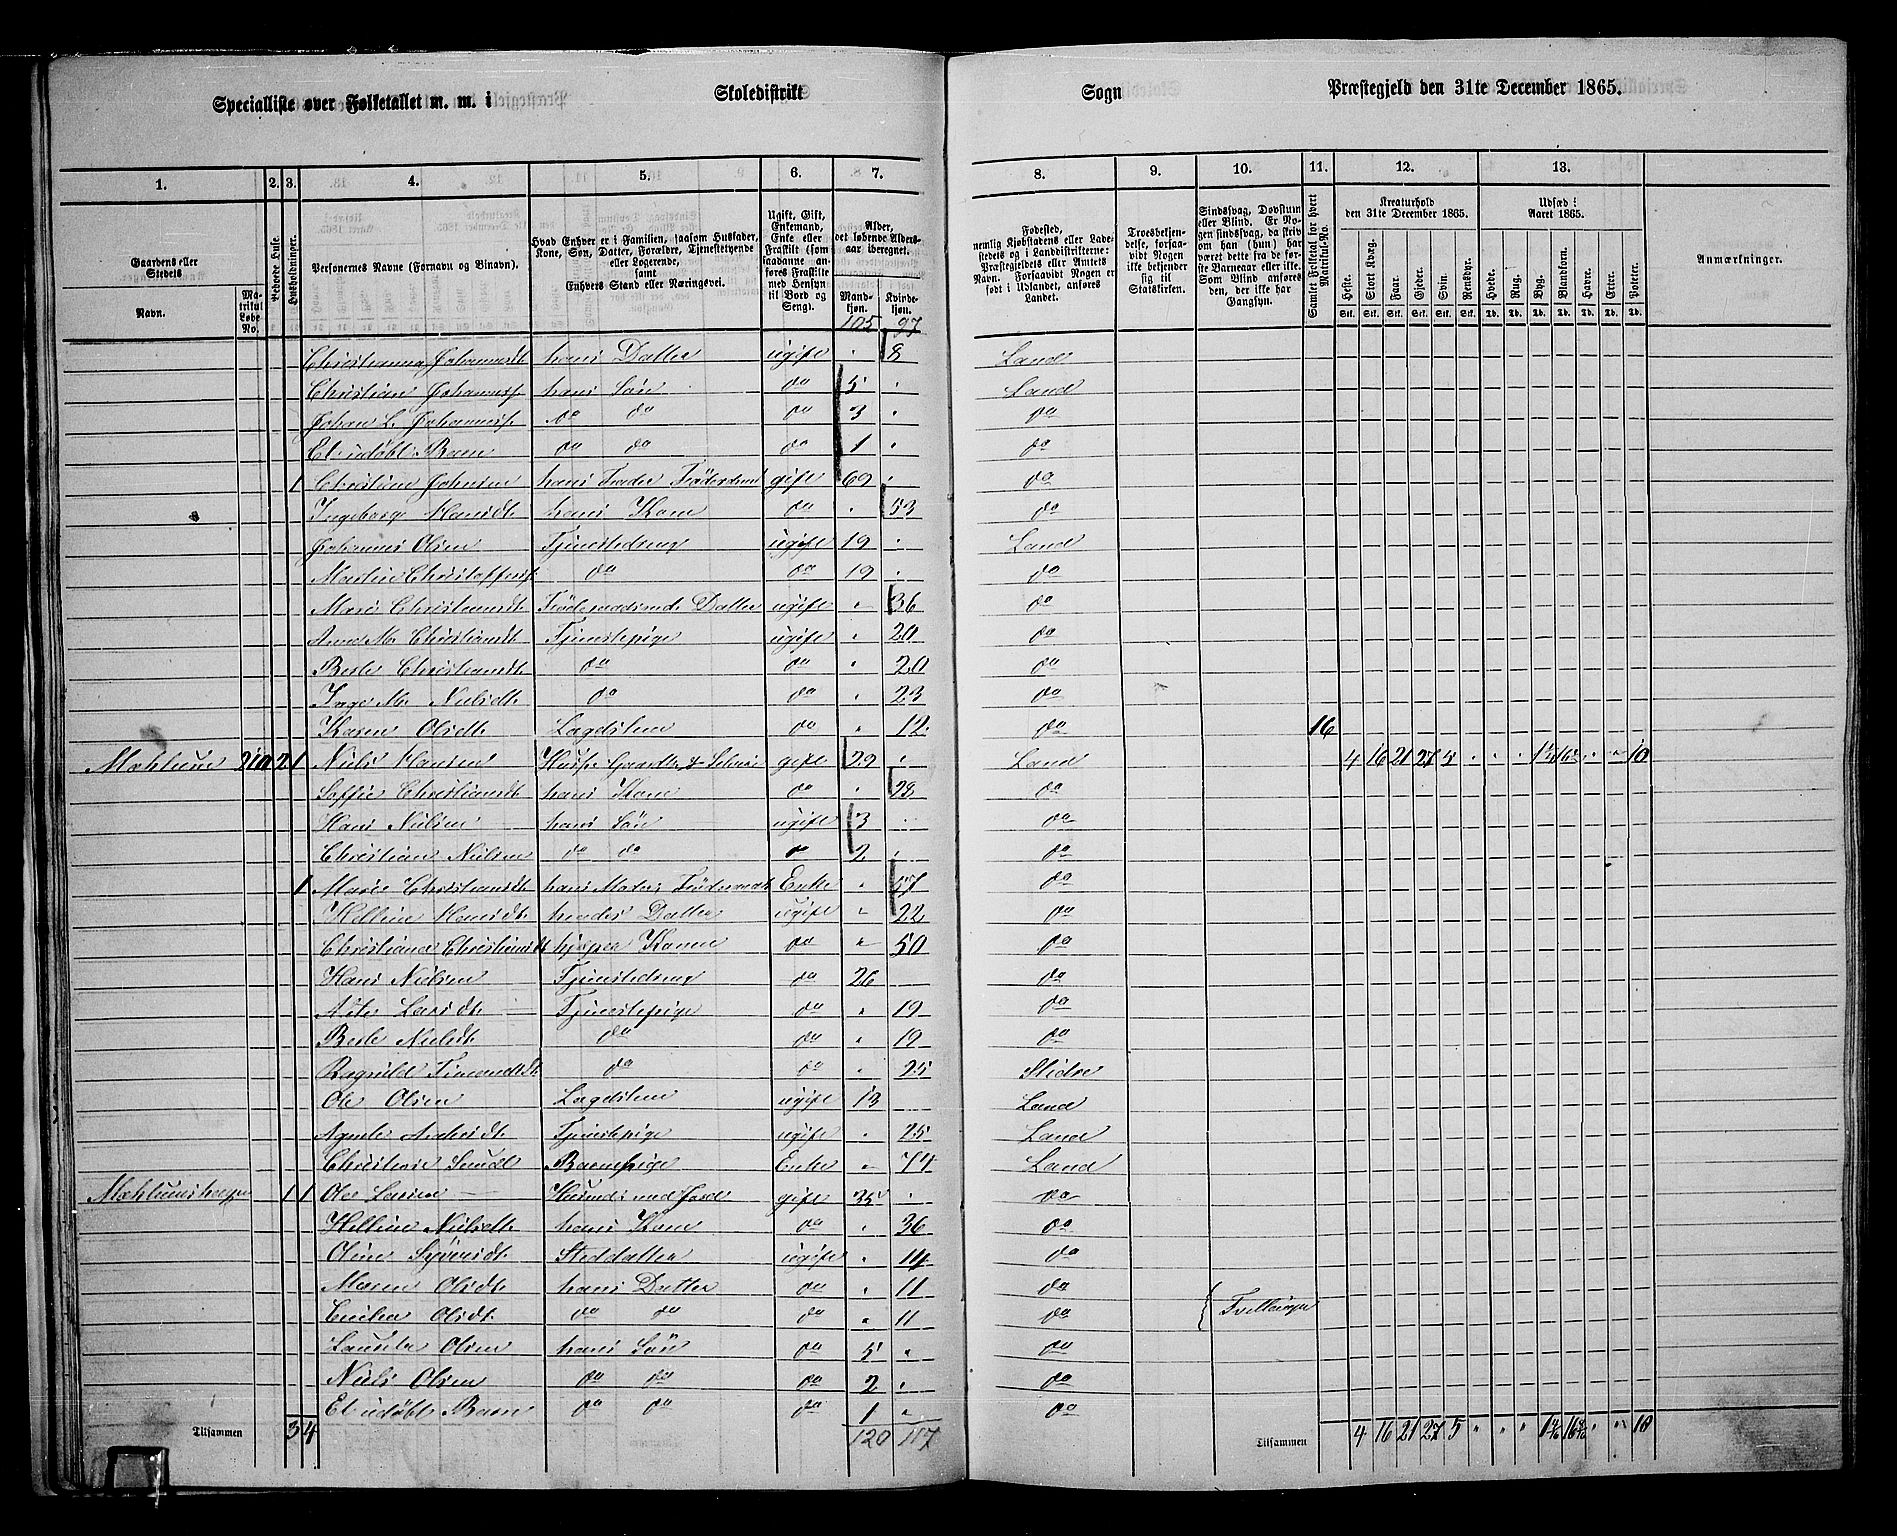 Specialliste over Folketallet m. m. i Skoledistrikt Sogn Præstegjeld den 31te December 1865.
1. 2. 3. 4. 5. 6. 7. 8. 9. 10. 11. 12. 13.
Gaardens eller Stedets
Navn.
Matrikul Løbe No.
Beboede Huse.
Husholdninger.
Personernes Navne (Fornavn og Binavn).
Hvad Enhver er i Familien, saasom Husfader, Kone, Søn, Datter, Forældre, Tjenestetyende eller Logerende, samt Enhvers Stand eller Næringsvei.
Ugift, Gift, Enkemand, Enke eller Fraskilt (som saadanne anføres Fraskilte med Hensyn til Bord og Seng).
Alder, det løbende Aldersaar iberegnet.
Mandkjøn. Kvindekjøn.
Fødested, nemlig Kjøbstadens eller Ladestedets og i Landdistrikterne: Præstegjeldets eller Amtets Navn. Forsaavidt Nogen er født i Udlandet, anføres Landet.
Troesbekjendelse, forsaavidt Nogen ikke bekjender sig til Statskirken.
Sindssvag, Døvstum eller Blind. Er Nogen sindssvag, da skrives om han (hun) har været dette fra de første Barneaar eller ikke. Som Blind anføres den, der ikke har Gangsyn.
Samlet Folketal for hvert Matrikul-No.
Kreaturhold den 31te December 1865.
Heste. Stort Kvæg. Faar. Gjeder. Svin. Rensdyr.
Udsæd i Aaret 1865.
Hvede. Rug. Byg. Blandkorn. Havre. Erter. Poteter.
Anmærkninger.
105 97
Christianna Johannesdt. hans Datter ugift 8 Land
Christian Johanness. hans Søn do 5 Land
Johan L. Johanness. do do do 3 do
Et udøbt Barn do do do 1 do
1 Christian Johnsen hans Fader gift 69 do
Ingeborg Hansdt. hans Kone do 53 do
Johannes Olsen Tjenestedreng ugift 19 Land
Martin Christoffers. do do 19 do
Mari Christiansdt. Datter ugift 36 do
Anne Ma Christiansdt. Tjenestepige ugift 20 do
Berte Christiansdt. do do 20 do
Inge Ma Nielsdt. do do 23 do
Karen Olsdt. Lægdslem do 12 do 16
21a 2 1 Niels Hansen gift 29 Land 4 16 21 27 5 10
Soffie Christiansdt. hans Kone do 28 do
Hans Nielsen hans Søn ugift 3 do
Christian Nielsen do do do 2 do
1 Marie Christiansdt. hans Moder Enke 57 do
Helline Hansdt. hendes Datter ugift 22 do
Christiane Christiansdt. hjelper Konen do 50 do
Hans Nielsen Tjenestedreng do 26 do
Larsdt. Tjenestepige do 19 do
Berte Nielsdt. do do 19 do
Ragnild do do 25 Slidre
Ole Olsen Lægdslem ugift 13 Land
Agnete Tjenestepige ugift 25 Land
Christiane Barnepige Enke 74 Land
1 1 Ole Larsen Husmd: med Jord gift 35 do
Helline Nielsdt. hans Kone do 36 do
Oline Syversdt. Steddatter ugift 14 do
Maren Olsdt. hans Datter do 11 do
Olsdt. do do do 11 do Tvillinger
Lauritz Olsen hans Søn do 5 do
Niels Olsen do do do 2 do
Et udøbt Barn do do do 1 do
Tilsammen 3 4 120 117 Tilsammen 4 16 21 27 5 10